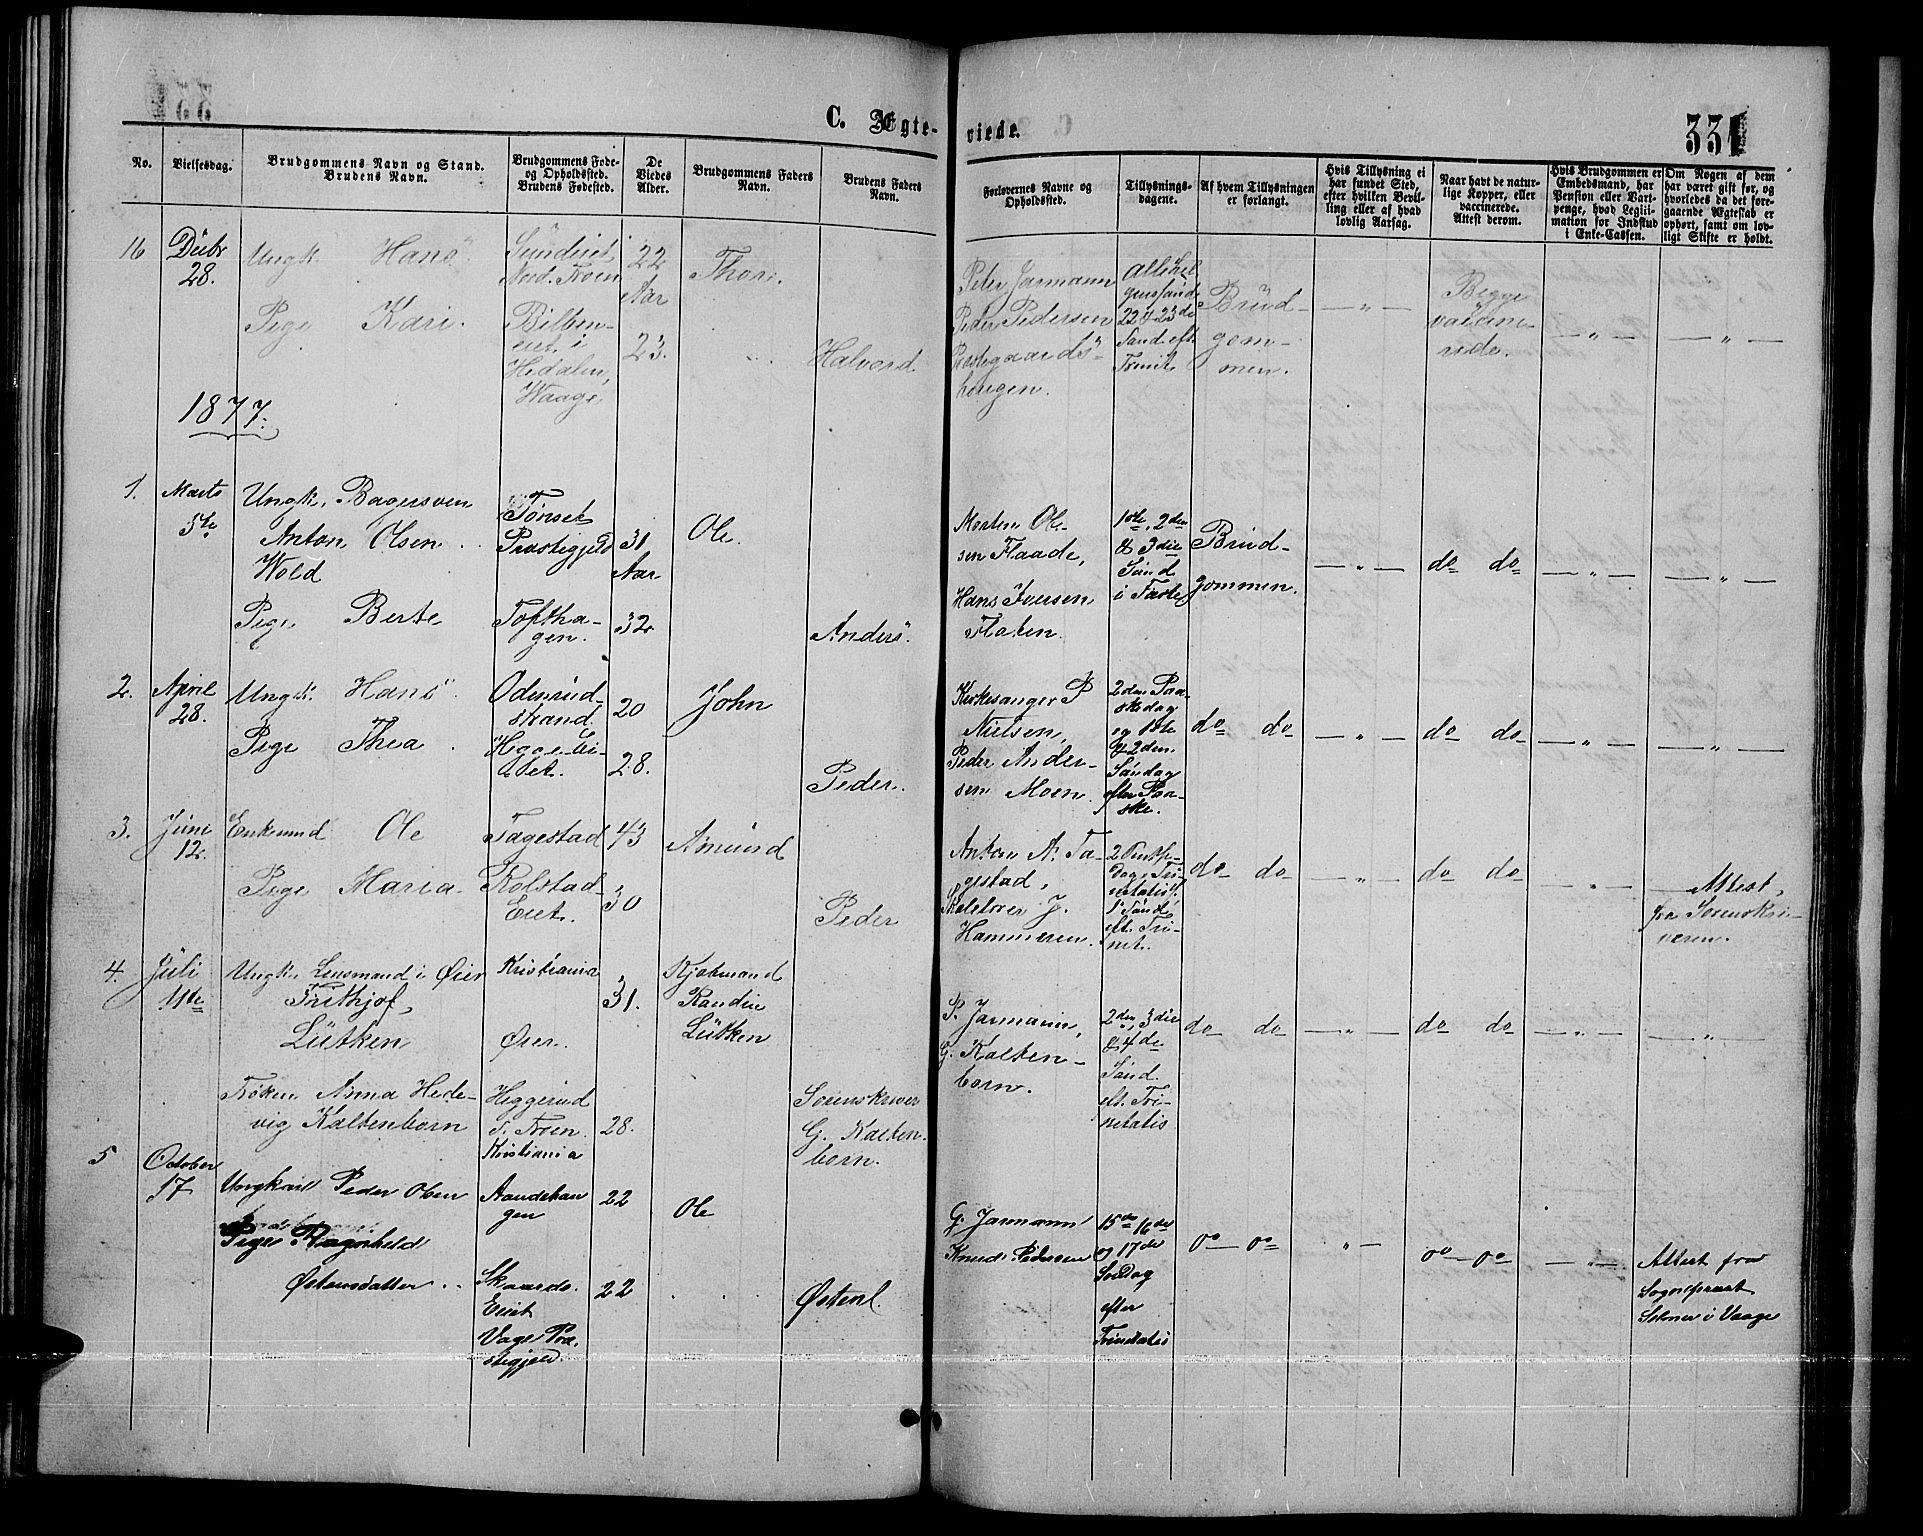 C. Ægte-
viede.
331
No.
Vielsesdag.
Brudgommens Navn og Stand.
Brudens Navn.
Brudgommens Føde-
og Opholdssted.
Brudens Fødested.
De
Viedes
Alder.
Brudgommens Faders
Navn.
Brudens Faders
Navn.
Forlovernes Navne og
Opholdssted.
Tillysnings-
dagene.
Af hvem Tillysningen
er forlangt.
Hvis Tillysning ei
har fundet Sted,
efter hvilken Bevil-
ling eller af hvad
lovlig Aarsag.
Naar havt de natur-
lige Kopper, eller
vaccinerede.
Attest derom.
Hvis Brudgommen er
Embedsmand, har
Pension eller Vart-
penge, hvad Legiti-
mation for Indskud
i Enke-Cassen.
Om Nogen af dem
har været gift før, og
hvorledes da det fore-
gaaende Ægteskab er
ophørt, samt om lov-
ligt Skifte er holdt.
16
Decbr
28.
Ungk. Hans
Nord. Froen
22
Aar
Thor.
Pige Kari.
eiet i
Hedalen,
Waage,
23.
Halvord
Peter Jarmann
Peder Pedersen
Præstegaards-
haugen.
22 & 23de
Sønd. eft.
Trinit.
Brüd-
gom-
men.
— " —
Begge
vaccine-
rede.
— " —
— " —
1877.
1.
Marts
5te
Ungk. Bagersven
Anton Olsen
Wold
Tønset
Præstegjeld
31
Aar
Ole.
Pige Berte
Toftha-
gen.
32
Anders.
Morten Ole-
sen Flaade,
Hans Iversen
Flaten.
1ste, 2den
& 3die
Sønd
i Faste
Brüd-
gommen.
— " —
do do
— " —
— " —
2.
April
28.
Ungk. Hans
Odenrud-
strand
20
John
Pige Thea
28.
Peder.
Kirkesanger P
Nielsen,
Peder Ander-
sen Moen
2den Paa-
skedag
og 1ste
& 2den
Søndag
efter Paa-
ske.
do do
— " —
do do
— " —
— " —
3.
Juni
12.
Enkemand Ole
Tagestad
43
Amund
Pige Maria
Kolstad-
Eiet.
30
Peder
Anton A. Ta-
gestad,
Skolelærer J.
Hammeren.
1 Sønd
eft. Tri-
nit.
do do
— " —
do do
— " —
Attest
fra Sorenskri-
veren.
4.
Juli
11te
Ungk. Lensmand i Øier
Frithjof
Lütken
Kristiania
Øier.
31.
Kjøbmand
Lütken
Frøken Anna Hede-
vig Kaltenborn
Heggerud
S. Froen
Kristiania
28.
Sorenskriver
G. Kalten-
born.
P. Jarmann,
G. Kalten-
born.
2den, 3die
& 4de
Sønd.
eft. Tri-
nitatis
do do
— " —
do do
— " —
— " —
5
October
17
Ungkarl Peder Olsen
Aandehau
gen
22
Ole
Pige Ragnhild
Østensdatter
Skaards-
Eiet
Vage Præ-
stegjeld.
22
Østen
G. Jarmann
Knud Pedersen
15de 16de
og 17de
Søndag
efter
Trinitatis
do — do
" —
do — do
— " —
Attest fra
Sognepræst
i Vaage